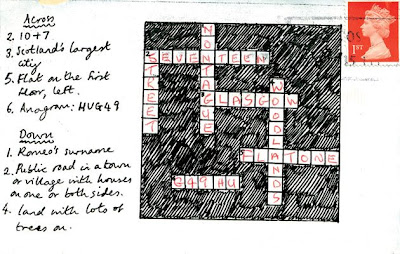 Across
2. 10+7
3. Scotland's largest
city
5. Flat on the first
floor, left.
6. Anagram: HUG49
Down
1. Romeo's surname
2. Public road in a town
or village with houses
on one or both sides.
4. Land with lots of
trees on.
MONTAGUE
SEVENTEEN
STREET
GLASGOW
WOODLANDS
FLATONE
G49 HU
1ST